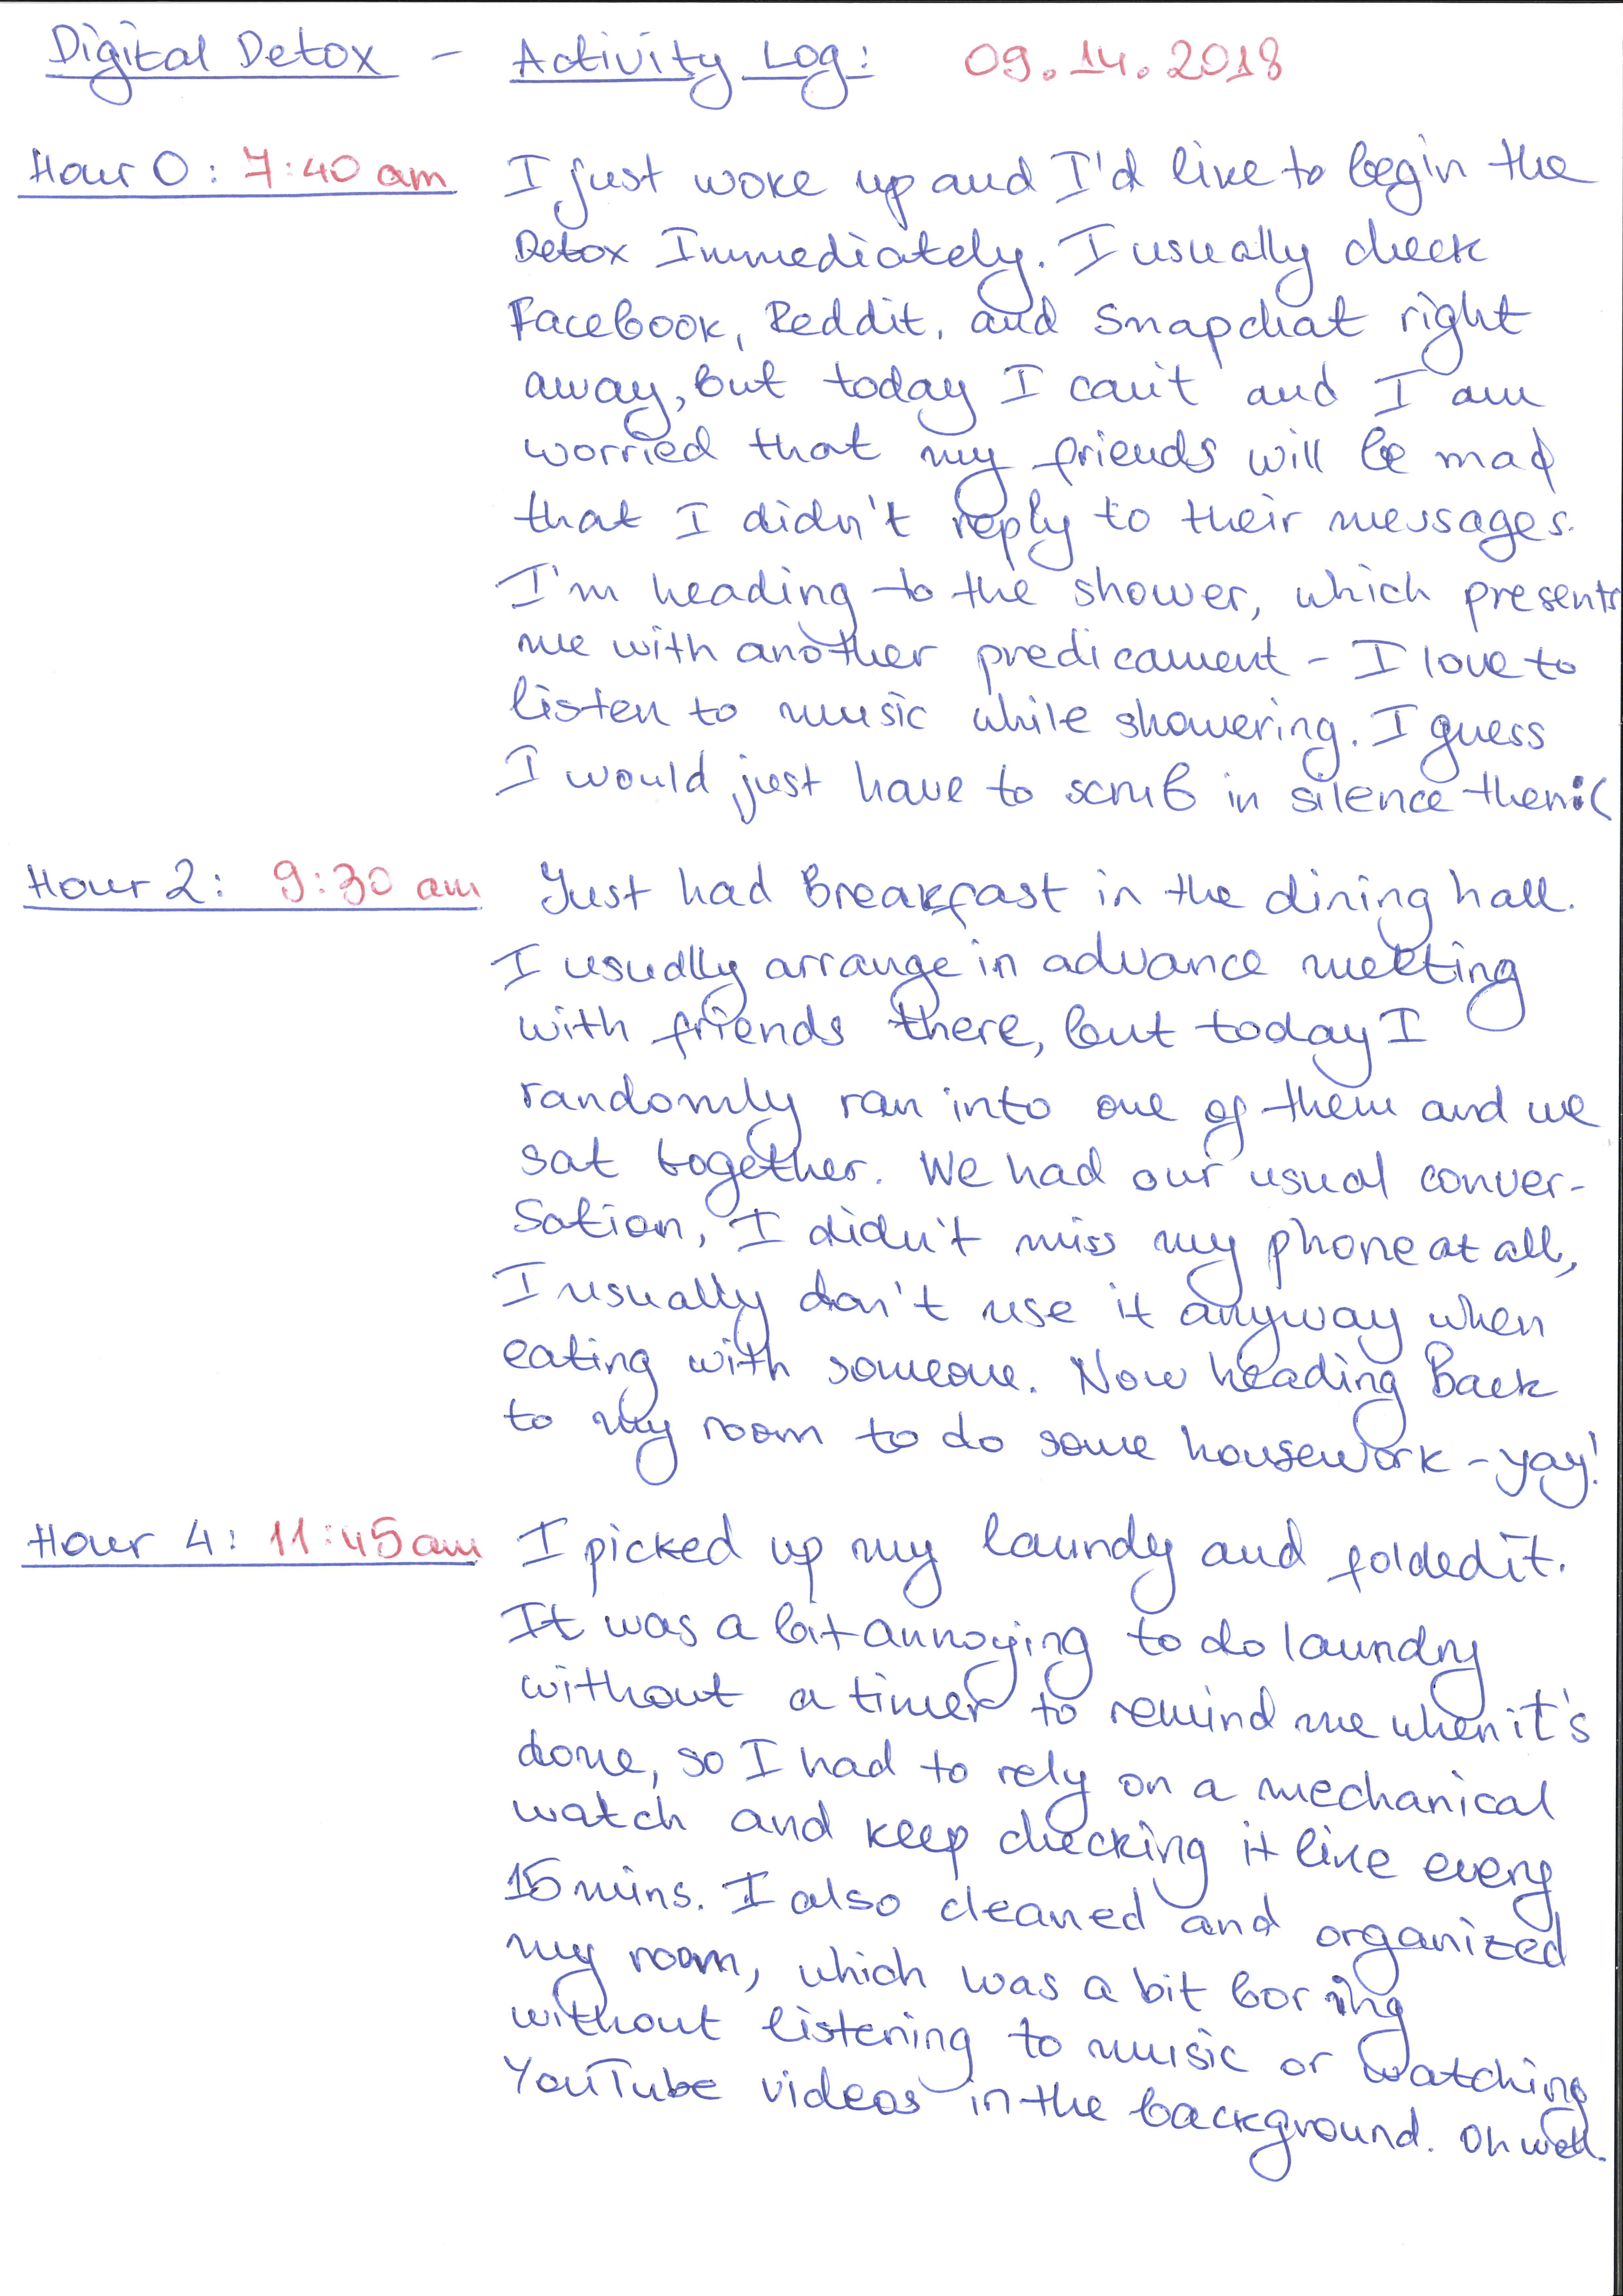 Digital Detox - Activity Log: 09.14.2018
Hour 0: 7:40 am I just woke up and I'd like to begin the
Detox Immediately. I usually check
Facebook, Reddit, and Snapchat right
away, but today I can't and I am
worried that my friends will be mad
that I didn't reply to their messages.
I'm heading to the shower, which presents
me with another predicament - I love to
listen to music while showering. I guess
I would just have to scrub in silence then :(
Hour 2: 9:30 am Just had Breakfast in the dining hall.
I usually arrange in advance meeting
with friends there, but today I
randomly ran into one of them and we
sat together. We had our usual conver-
sation, I didn't miss my phone at all,
I usually don't use it anyway when
eating with someone. Now heading Back
to my room to do some housework - yay!
Hour 4: 11:45 am I picked up my laundy and folded it.
It was a bit annoying to do laundry
without a timer to remind me when it's
done, so I had to rely on a mechanical
watch and keep checking it like every
15 mins. I also cleaned and organized
my room, which was a bit boring
without listening to music or watching
YouTube videos in the background. Oh well.